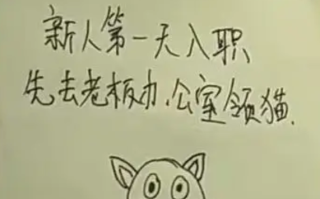 新人第一天入职
先去老板办公室领猫.